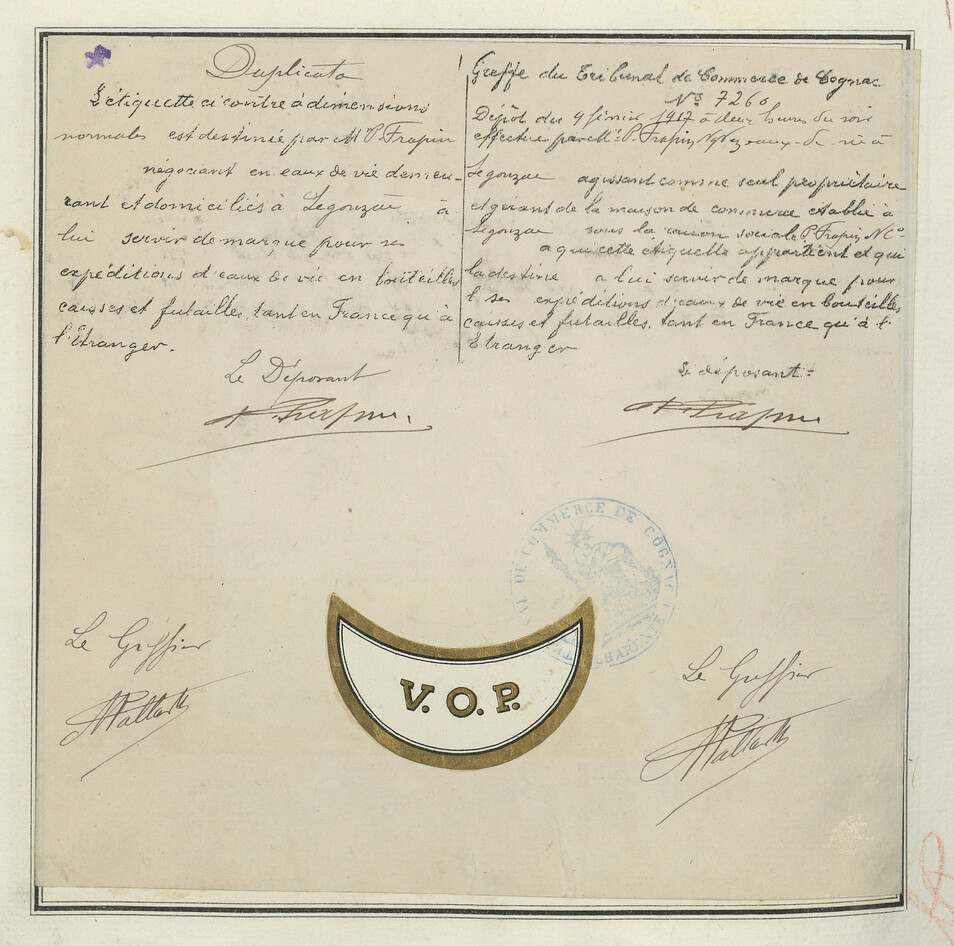 Duplicata
L'étiquette ci contre à dimensions
normales est destinée par Mr P. Frapin
négociant en eaux de vie demeu-
rant et domiciliés à Segonzac à
lui servir de marque pour ses
expéditions d'eaux de vie en bouteilles
caisses et futailles, tant en France qu'à
l'Etranger.
Le Déposant
P. Frapin
Greffe du Tribunal de Commerce de Cognac
No 7260
Dépôt du 9 février 1917 à deux heures du soir
effectué par Mr P. Frapin Ngt eaux-de-vie à
Segonzac agissant comme seul propriétaire
et gérant de la maison de commerce établie à
Segonzac sous la raison sociale P. Frapin & Co
a qui cette étiquette appartient et qui
la destine a lui servir de marque pour
ses expéditions d'eaux de vie en bouteilles
caisses et futailles, tant en France qu'à l'
Etranger
Le déposant:
P. Frapin
DE COMMERCE DE COGNAC
Le Greffier
V.O.P.
Le Greffier